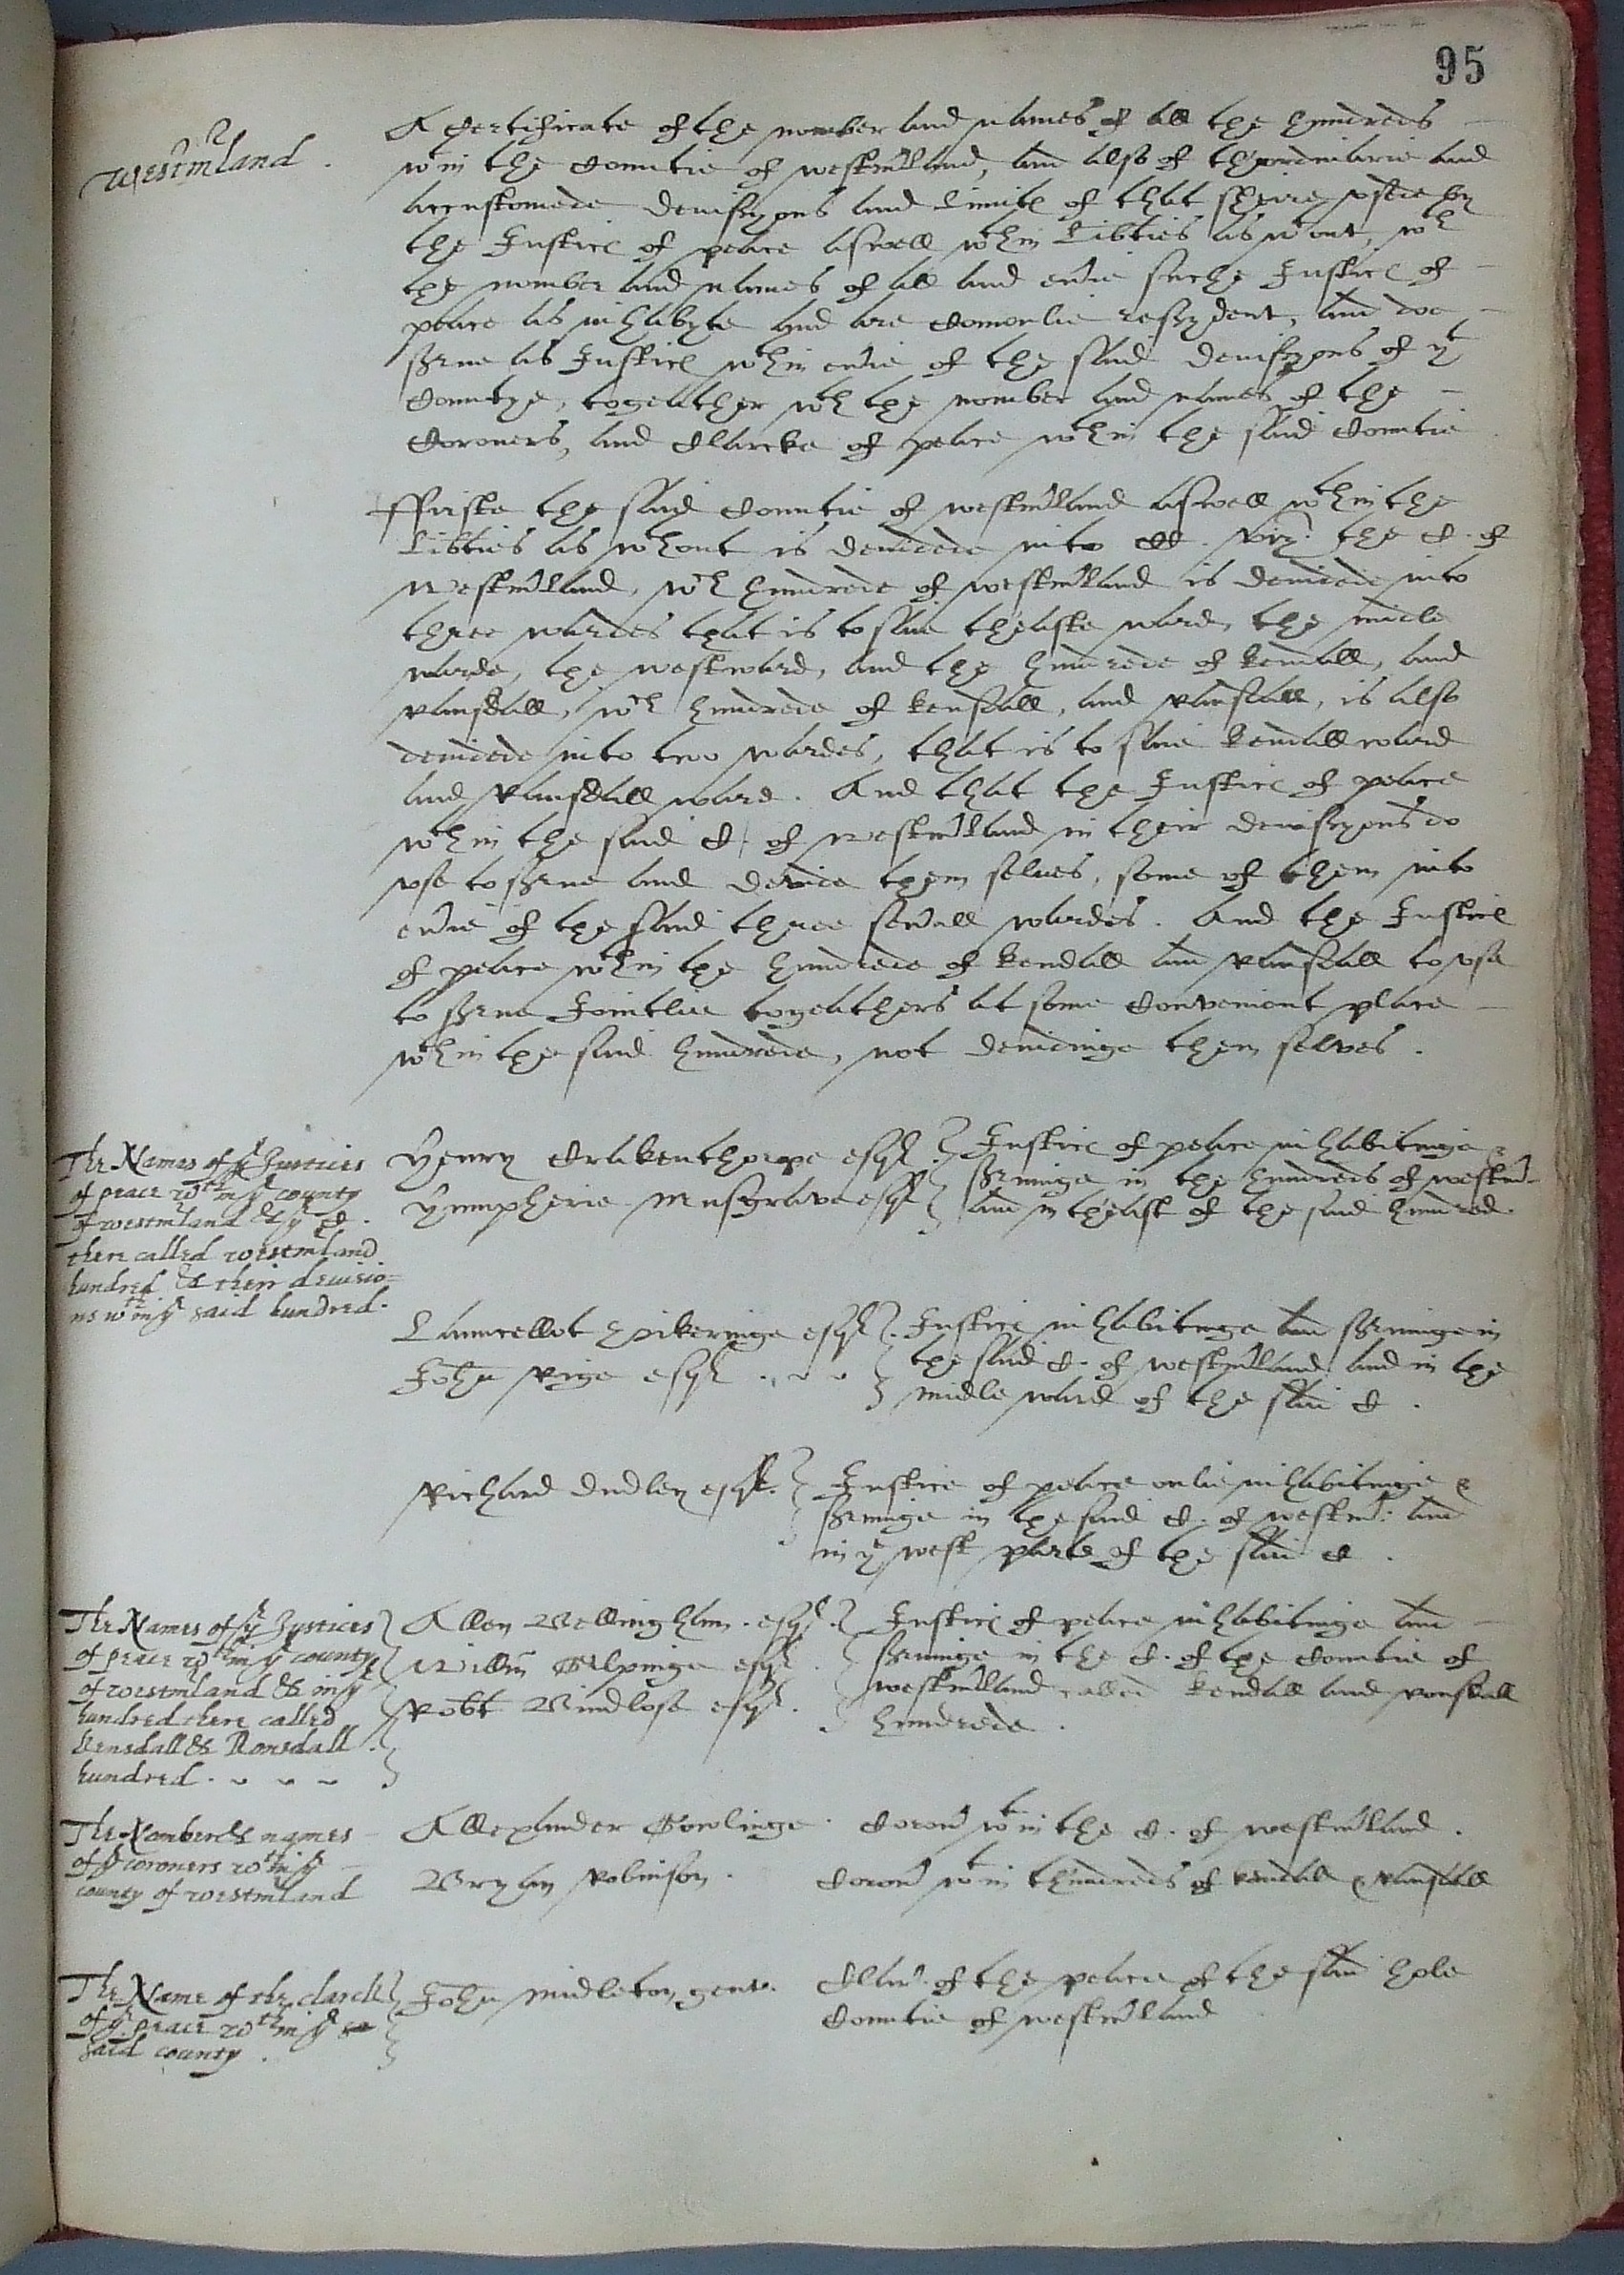 95
Westm̃land.
A Certificate of the nomber and names of all the hundreds
wᵗin the Countie of westm̃land, and also of th'ordinarie and
accustomede devisyons and Limitꝭ of that sheire vsede by
the Justicꝭ of peace aswell wᵗʰin Lib̃ties as wᵗout, wᵗʰ
the nomber and names of all and eṽie suche Justicꝭ of
peace as inhabyte and are Comonlie resydent, and doe
s̃rue as Justicꝭ wᵗʰin eṽie of the said devisyons of yᵗ
Countye, togeather wᵗʰ the nomber and names of the
Coroners, and Clarcke of peace wᵗʰin the said Countie
ffirste the said Countie of westm̃land aswell wᵗʰin the
Lib̃ties as wᵗʰout is devidede into CC. viz: the C. of
Westm̃land, wᶜʰ hundrede of westm̃land is devidede into
three wardes that is to saie theaste ward, the midle
warde, the westward, and the hundrede of kendall, and
Lansdall, wᶜʰ hundrede of kensdall, and Lansdall, is also
devidede into two wardes, that is to saie kendall ward
and Lansdall warde. And that the Justicꝭ of peace
wᵗʰin the said C. of Westm̃land in their devisyons do
vse to s̃rue and devide them selues, some of them into
eṽie of the said three seṽall wardes. And the Justicꝭ
of peace wᵗʰin the hundrede of kendall and Lansdall to vse
to s̃rue Jointlie togeathers at some Convenient place
wᵗʰin the said hundrede, not devidinge them selves.
The Names of yᵉ Justices
of peace wᵗʰin yᵉ county
of westm̃land & yᵉ C.
there called westm̃land
hundred & their deuisio=
ns wᵗʰin yᵉ said hundred.
Henry Crakenthorpe esqʳ. Justicꝭ of peace inhabitinge &
Humpherie Musgrave esqʳ s̃ruinge in the hundreds of westm̃
and in theast of the said hundred.
Launcellot Pikeringe esqʳ. Justicꝭ inhabitinge and s̃ruinge in
John Rige esqʳ the said C. of westm̃land and in the
midle ward of the said C.
Richard Dudley esqʳ. Justice of peace onlie inhabitinge &
s̃ruinge in the said C. of westm̃: and
in yᵉ west parte of the said C.
The Names of yᵉ Justices
of peace wᵗʰin yᵉ county
of westm̃land & in yᵉ
hundred there called
kensdall & Lonsdall
hundred.
Allen Bellingham. esqʳ. Justicꝭ of peace inhabitinge and
Willm̃ Gilpinge esqʳ. s̃ruinge in the C. of the Countie of
Rob̃t Bindlose esqʳ. westm̃land called kendall and Lonsdall
hundrede.
The Nomber & names
of yᵉ coroners wᵗʰin yᵉ
county of westm̃land
Allexander Gowlinge. Coron̄ wᵗin the C. of westm̃land.
Bryan Robinson. Coron̄ wᵗin thundreds of kendall & Lansdall
The Name of the clarck
of yᵉ peace wᵗʰin yᵉ
said county.
John Midleton, gent. Clar̃. of the peace of the said hole
Countie of westm̃land